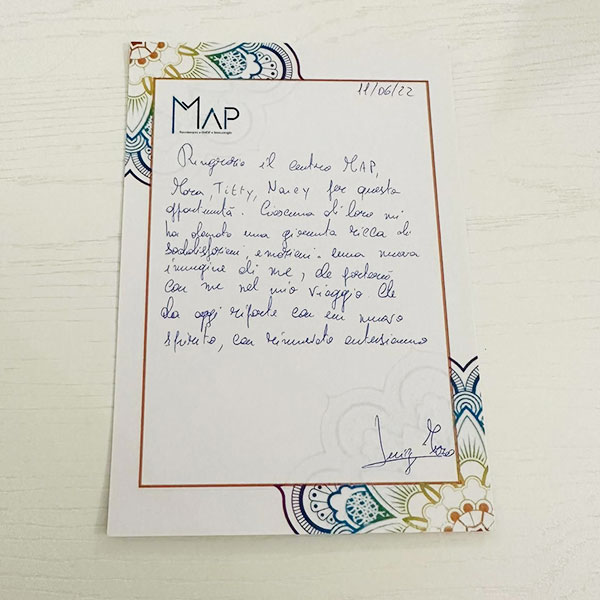 11/06/22
MAP
Ringrazio il centro MAP,
Mara, Titty, Nancy per questa
opportunità. Ciascuna di loro mi
ha donato una giornata ricca di
soddisfazioni, emozioni. una nuova
immagine di me, che porterò
con me nel mio viaggio. Che
da oggi riparte con un nuovo
spirito, con rinnovato entusiasmo